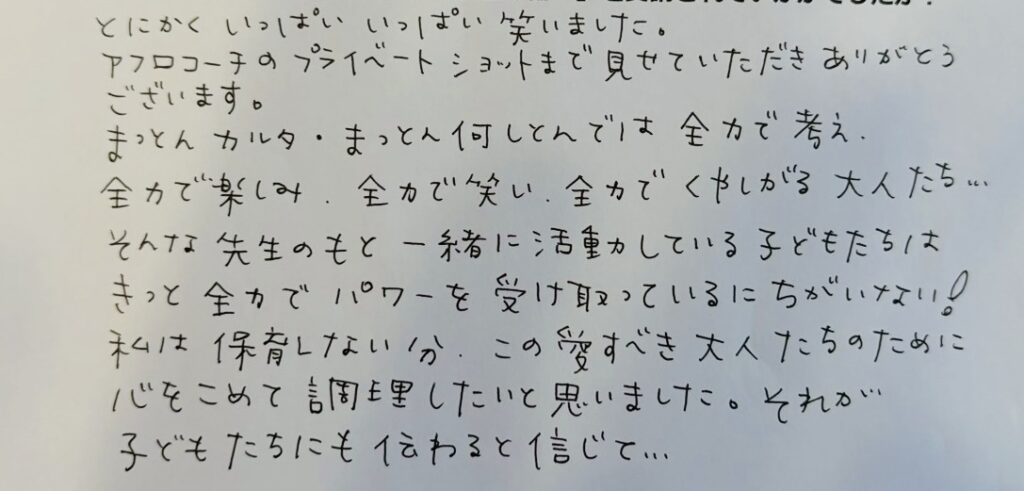 とにかく いっぱい いっぱい 笑いました。
アフロコーチの プライベート ショットまで 見せていただき ありがとう
ございます。
まっとん カルタ・まっとん何しとんでは 全力で 考え.
全力で楽しみ. 全力で笑い. 全力で くやしがる 大人たち…
そんな 先生のもと 一緒に活動している 子どもたちは
きっと 全力で パワーを 受け取っているに ちがいない!
私は 保育しない分. この 愛すべき 大人たちのために
心をこめて 調理したいと 思いました。それが
子どもたちにも 伝わると 信じて…